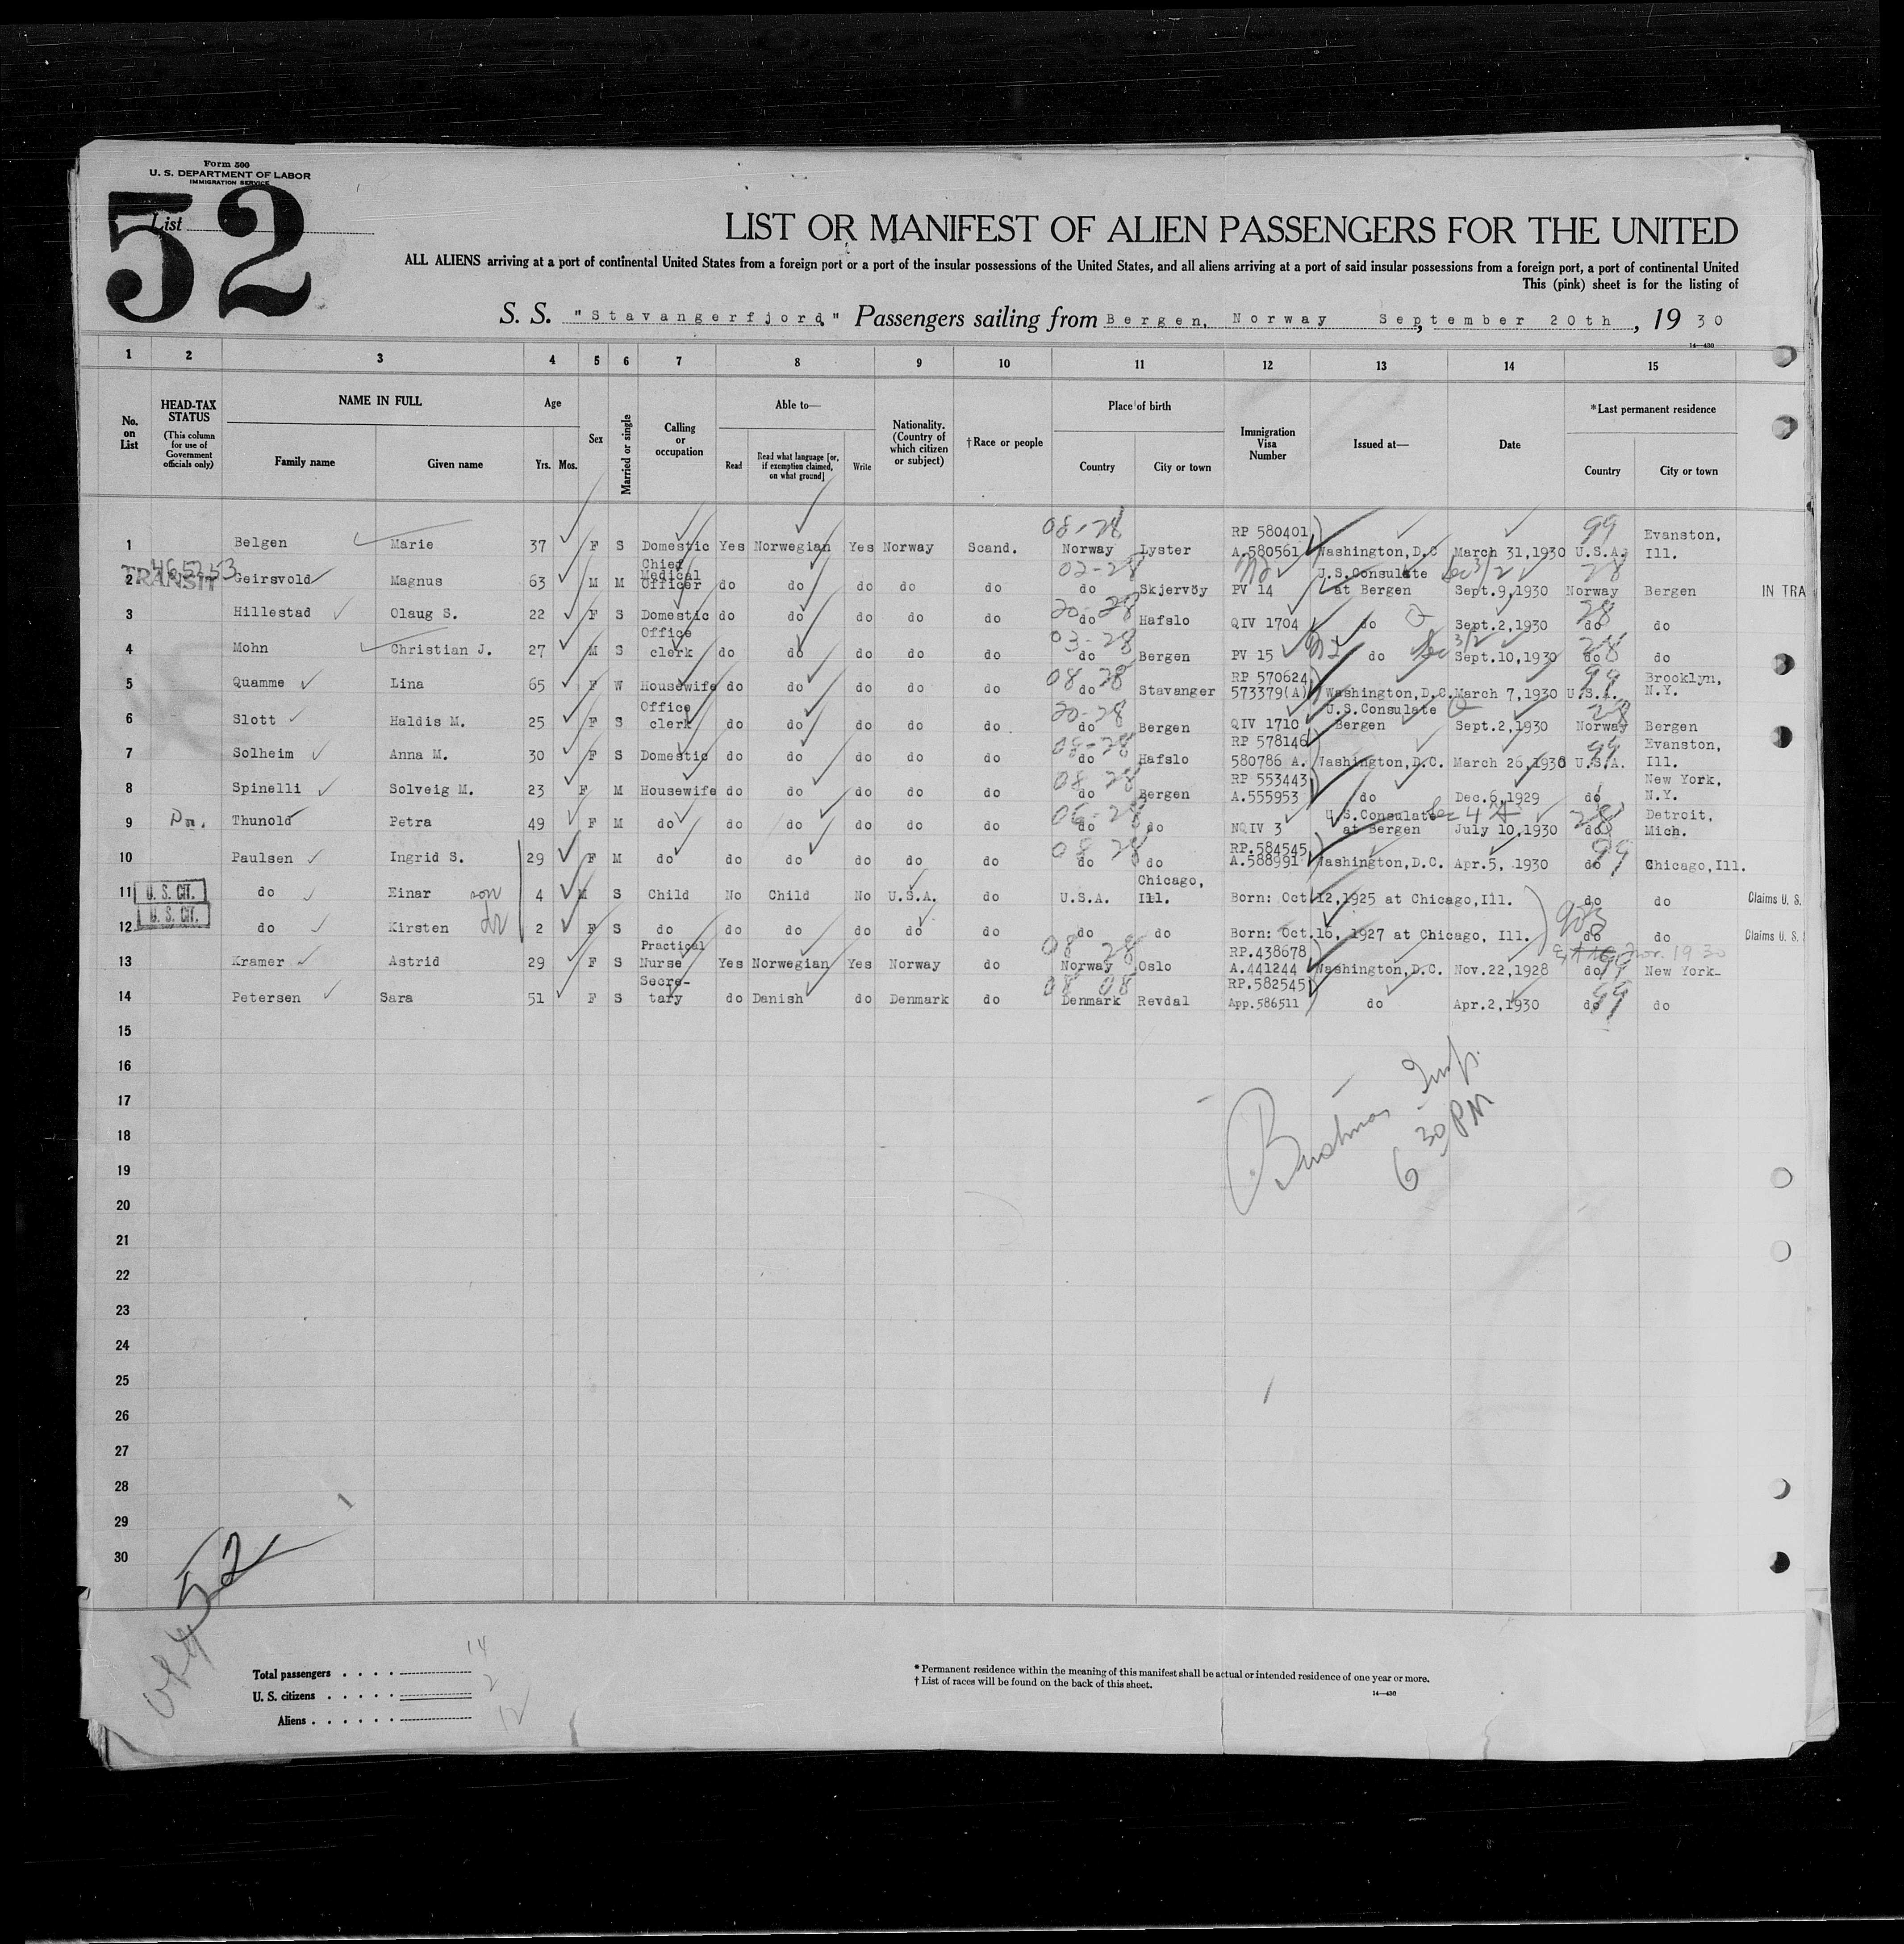 Form 500
U. S. DEPARTMENT OF LABOR
IMMIGRATION SERVICE
52
List
LIST OR MANIFEST OF ALIEN PASSENGERS FOR THE UNITED
ALL ALIENS arriving at a port of continental United States from a foreign port or a port of the insular possessions of the United States, and all aliens arriving at a port of said insular possessions from a foreign port, a port of continental United
This (pink) sheet is for the listing of
S. S. "Stavangerfjord," Passengers sailing from Bergen, Norway September 20th, 1930
14—430
1 2 3 4 5 6 7 8 9 10 11 12 13 14 15
No. on List
HEAD-TAX STATUS (This column for use of Government officials only)
NAME IN FULL
Family name Given name
Age
Yrs. Mos.
Sex
Married or single
Calling or occupation
Able to—
Read Read what language [or, if exemption claimed, on what ground] Write
Nationality. (Country of which citizen or subject)
†Race or people
Place of birth
Country City or town
Immigration Visa Number
Issued at—
Date
*Last permanent residence
Country City or town
1 Belgen Marie 37 F S Domestic Yes Norwegian Yes Norway Scand. 08-28 Norway Lyster RP 580401 A.580561 Washington,D.C March 31,1930 99 U.S.A. Evanston, Ill.
2 TRANSIT 465253 Geirsvold Magnus 63 M M Chief Medical Officer do do do do do 02-28 do Skjervöy PV 14 U.S.Consulate at Bergen Sec 3/2 Sept.9,1930 28 Norway Bergen IN TRA
3 Hillestad Olaug S. 22 F S Domestic do do do do do 20-28 do Hafslo QIV 1704 do Q Sept.2,1930 28 do do
4 Mohn Christian J. 27 M S Office clerk do do do do do 03-28 do Bergen PV 15 do Sec 3/2 Sept.10,1930 28 do do
5 Quamme Lina 65 F W Housewife do do do do do 08 28 do Stavanger RP 570624 573379(A) Washington,D.C. March 7,1930 99 U.S.A. Brooklyn, N.Y.
6 Slott Haldis M. 25 F S Office clerk do do do do do 20-28 do Bergen QIV 1710 U.S.Consulate Bergen Q Sept.2,1930 28 Norway Bergen
7 Solheim Anna M. 30 F S Domestic do do do do do 08-28 do Hafslo RP 578146 580786 A. Washington,D.C. March 26,1930 99 U.S.A. Evanston, Ill.
8 Spinelli Solveig M. 23 F M Housewife do do do do do 08 28 do Bergen RP 553443 A.555953 do Dec.6,1929 do New York, N.Y.
9 Thunold Petra 49 F M do do do do do do 06-28 do do NQIV 3 U.S.Consulate at Bergen Sec 4 A July 10,1930 28 do Detroit, Mich.
10 Paulsen Ingrid S. 29 F M do do do do do do 08 28 do do RP.584545 A.588991 Washington,D.C. Apr.5, 1930 99 do Chicago,Ill.
11 U. S. CIT. do Einar son 4 M S Child No Child No U.S.A. do U.S.A. Chicago, Ill. Born: Oct.12,1925 at Chicago,Ill. do do Claims U. S.
12 U. S. CIT. do Kirsten do 2 F S do do do do do do do do Born: Oct.16, 1927 at Chicago, Ill. do do Claims U. S.
13 Kramer Astrid 29 F S Practical Nurse Yes Norwegian Yes Norway do 08 28 Norway Oslo RP.438678 A.441244 Washington,D.C. Nov.22,1928 99 do New York
14 Petersen Sara 51 F S Secre-tary do Danish do Denmark do 08 08 Denmark Revdal RP.582545 App.586511 do Apr.2,1930 99 do do
15
16
17
18
19
20
21
22
23
24
25
26
27
28
29
30
Insp.
6 30 PM
52
Total passengers 14
U. S. citizens 2
Aliens 12
*Permanent residence within the meaning of this manifest shall be actual or intended residence of one year or more.
†List of races will be found on the back of this sheet.
14—430